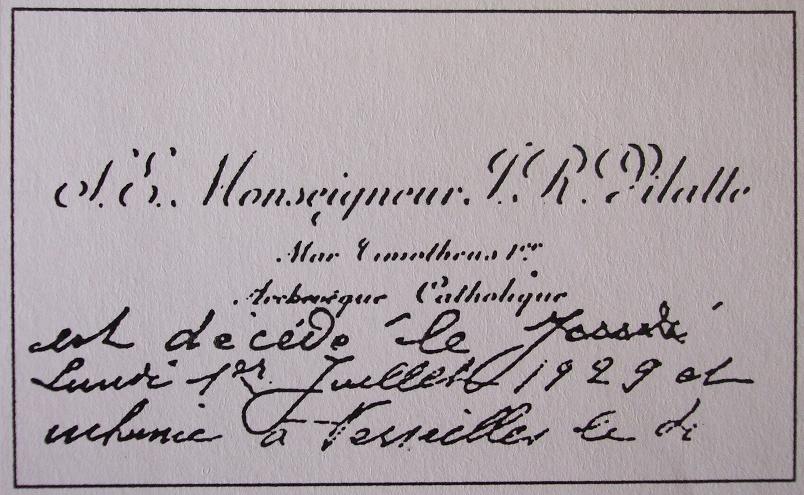 S. E. Monseigneur J. R. Vilatte
Mar Timotheus 1er
Archevêque Catholique
est décédé le
Lundi 1er Juillet 1929 et
inhumé à Versailles le di